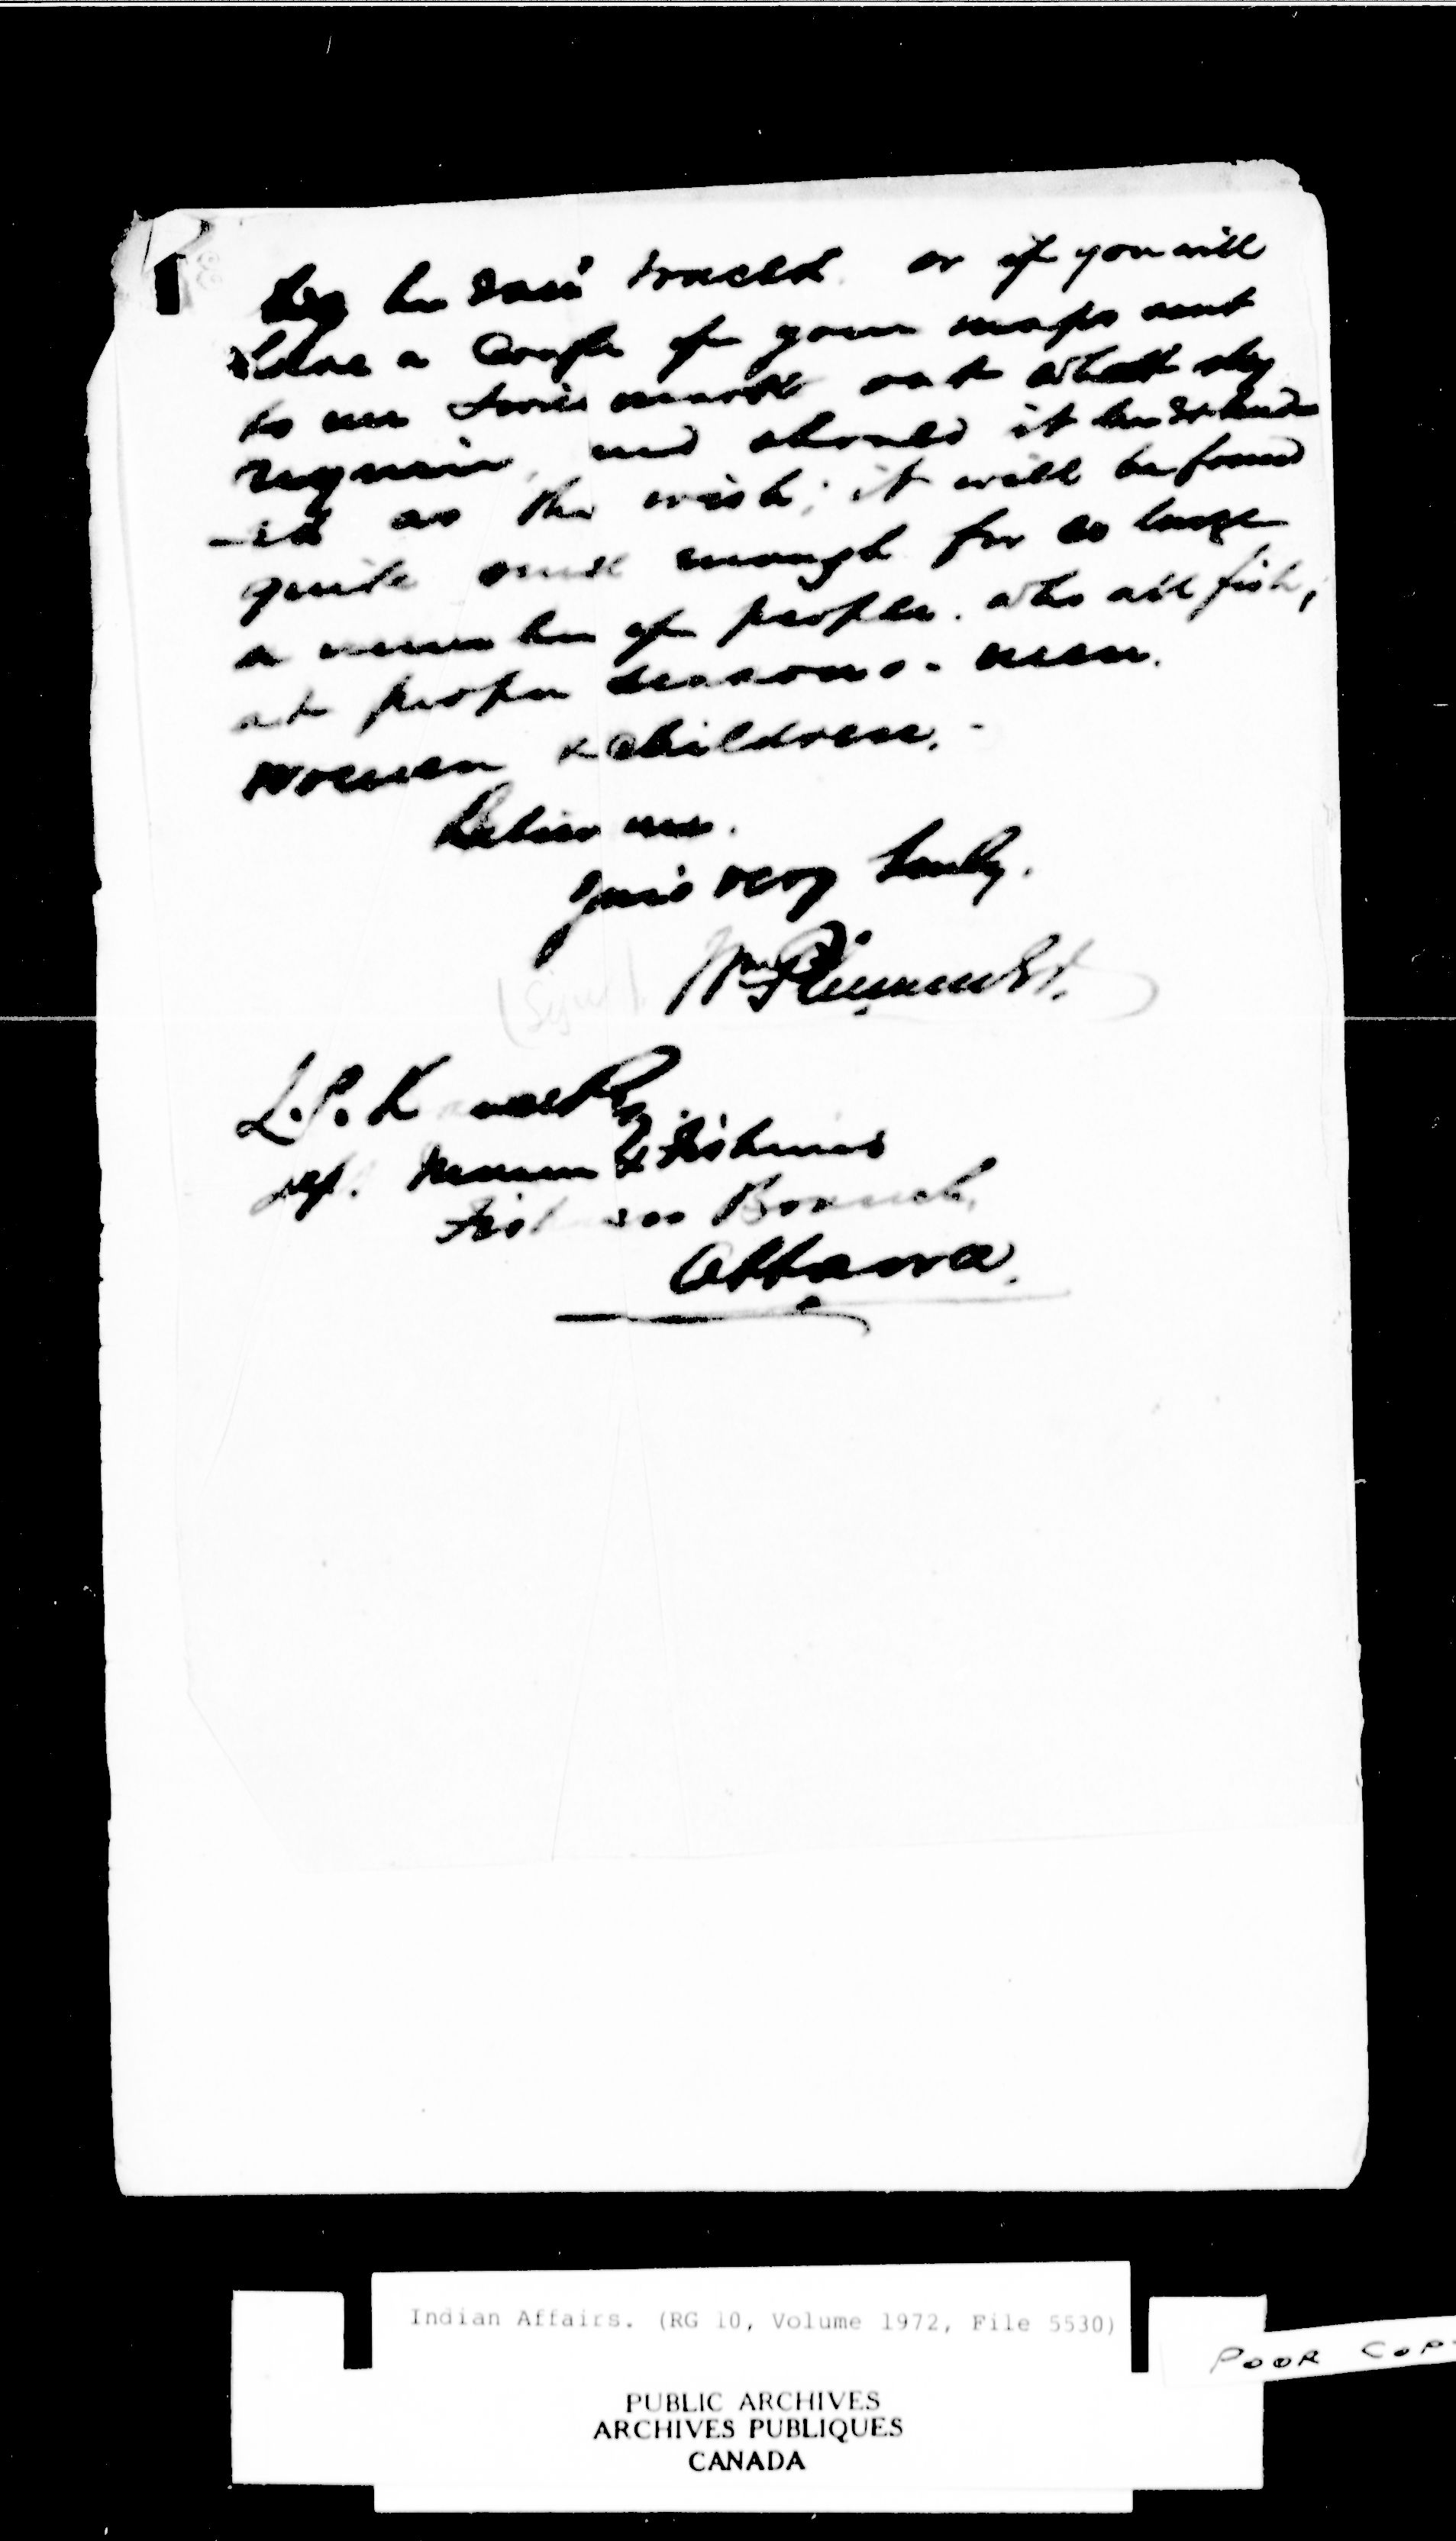 or if you will
have a couple of your maps sent
to me I will mark out what they
require, and should it be extend
-ed as they wish; it will be found
quite small enough for so large
a number of people. who all fish,
at proper seasons - men.
Women & children. -
Believe me.
Yours very truly.
(Signed) Wm Plummer
L.P.
Dep. Marine & Fisheries
Fisheries Branch,
Ottawa.
Indian Affairs. (RG 10, Volume 1972, File 5530)
POOR COP
PUBLIC ARCHIVES
ARCHIVES PUBLIQUES
CANADA